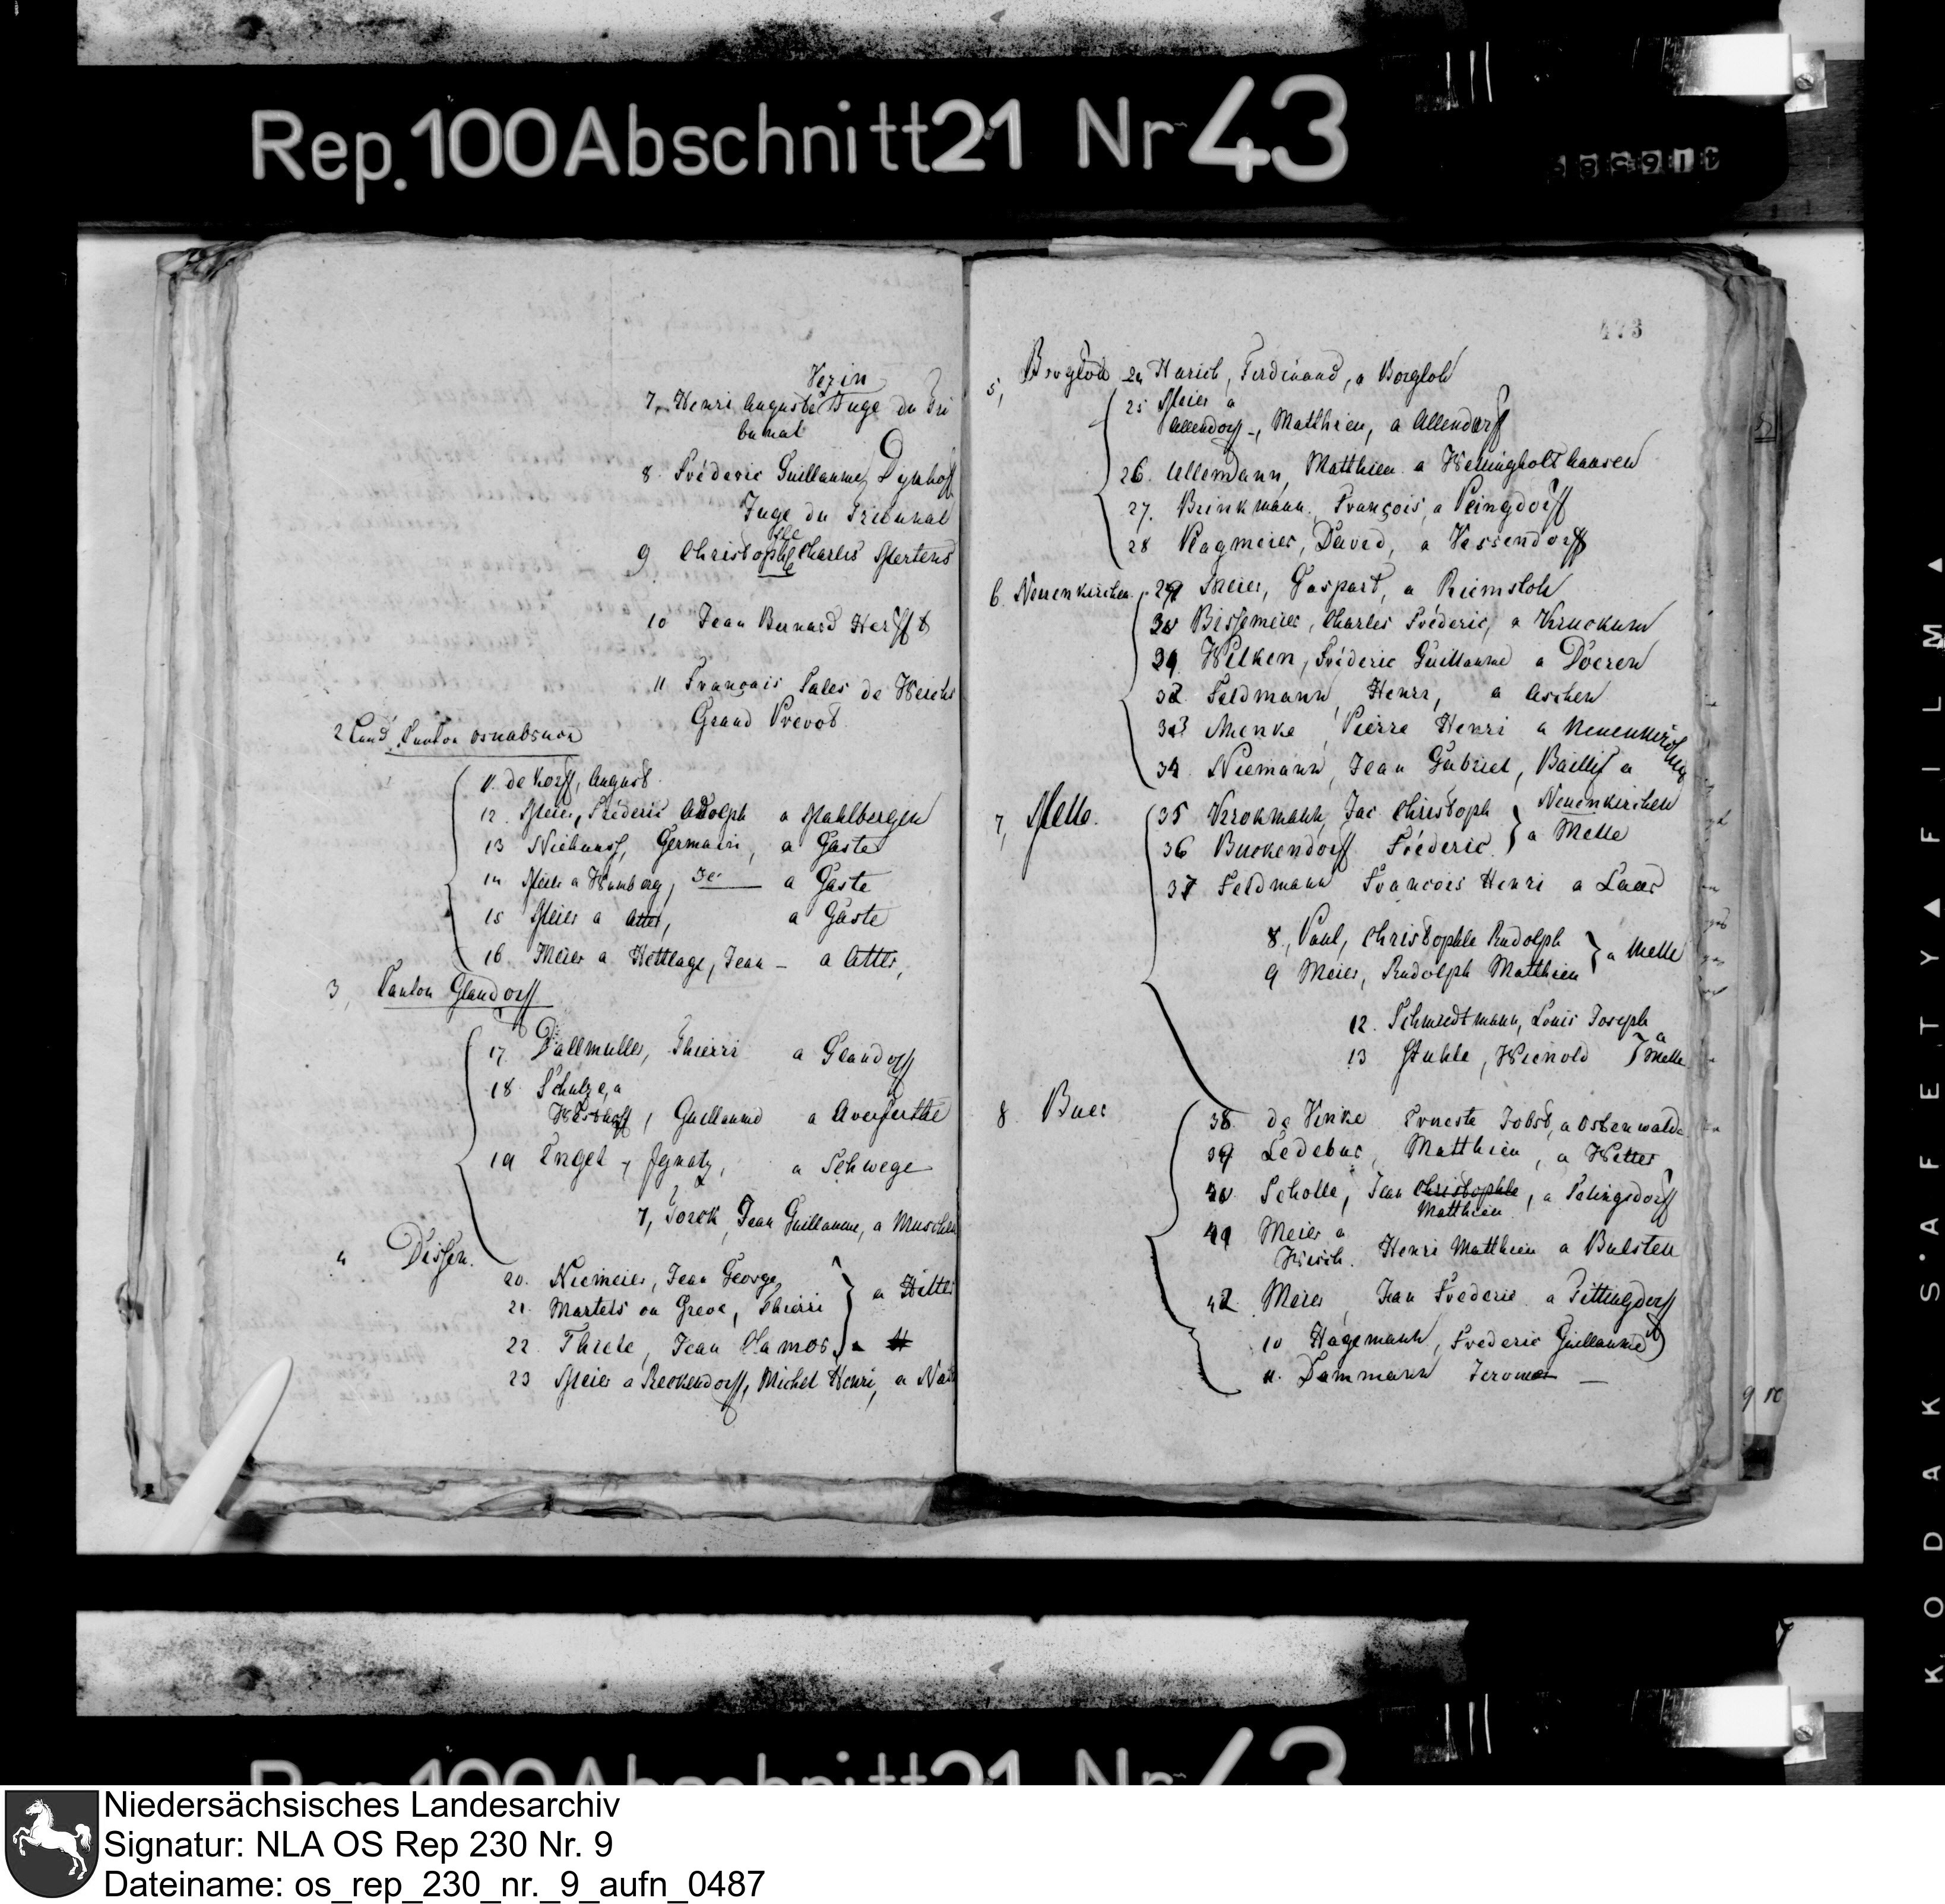 Rep. 100 Abschnitt 21 Nr 43
Vezin
7, Henri Auguste Juge du Tri
bunal
8. Fréderic Guillaume Dykhoff
Juge du Tribunal
9. Christophe Charles Mertens
10 Jean Bernard Herfft
11 François Sales de Weichs
Grand Prevot
2 Land Canton Osnabruck
11. de Korff, August.
12. Meier, Fréderic Adolph a Mahlbergen
13 Niehaus, Germain, a Gaste
14 Meier a Hamberg, a Gaste
15 Meier a Atter, a Gaste
16. Meier a Hettlage, Jean – a Atter,
3, Canton Glandorff
17. Dallmuller, Thierri a Glandorff
18. Schulze, a
Westhoff, Guillaume a Averfehrte
19 Engel, Ignatz, a Schwege
7, Jorck, Jean Guillaume, a Muschen
4 Dissen.
20. Niemeier, Jean George
21. Martels ou Greve, Thierri } a Hilter
22. Threle, Jean } a H
23 Meier a Reckendorff, Michel Henri, a
473
5, Borgloh 24 Harich, Ferdinand, a Borgloh
25 Meier a
Allendorff –, Matthieu, a Allendorff
26. Ullemann, Matthieu a Wellingholthausen
27. Brinkmann, François, a Peingdorff
28 Plagmeier, David, a Vessendorff
6 Neuenkirchen. 29 Meier, Gaspart, a Riemsloh
30 Bissmeier, Charles Fréderic, a Kruckum
31. Wilken, Fréderic Guillaume a Doeren
32 Feldmann, Henri, a Aschen
33 Menke, Pierre Henri a Neuenkirchen
34. Niemann, Jean Gabriel, Baillif a
Neuenkirchen
7, Melle. 35 Krokmann, Jac Christoph
36 Buckendorff Fréderic. } a Melle
37 Feldmann François Henri a Laer
8, Pahl, Christophle Rudolph
9 Meier, Rudolph Matthieu } a Melle
12. Schmidtmann, Louis Joseph
13 Stuhle, Wienold } a Melle
8. Buer
38. de Vinke Erneste Jobst, a Ostenwalde
39 Ledebur, Matthieu, a Wetter
40. Scholle, Jean Christophle, a Sehlingsdorff
Matthieu
41 Meier a
Kirch. Henri Matthieu a Bulsten
42 Meier, Jean Frederic a Tittingdorff
10 Hagemann, Frederic Guillaume
11. Dammann Jerome –
9 10
KODAK SAFETY FILM
Rep. 100 Abschnitt 21 Nr 43
Niedersächsisches Landesarchiv
Signatur: NLA OS Rep 230 Nr. 9
Dateiname: os_rep_230_nr._9_aufn_0487